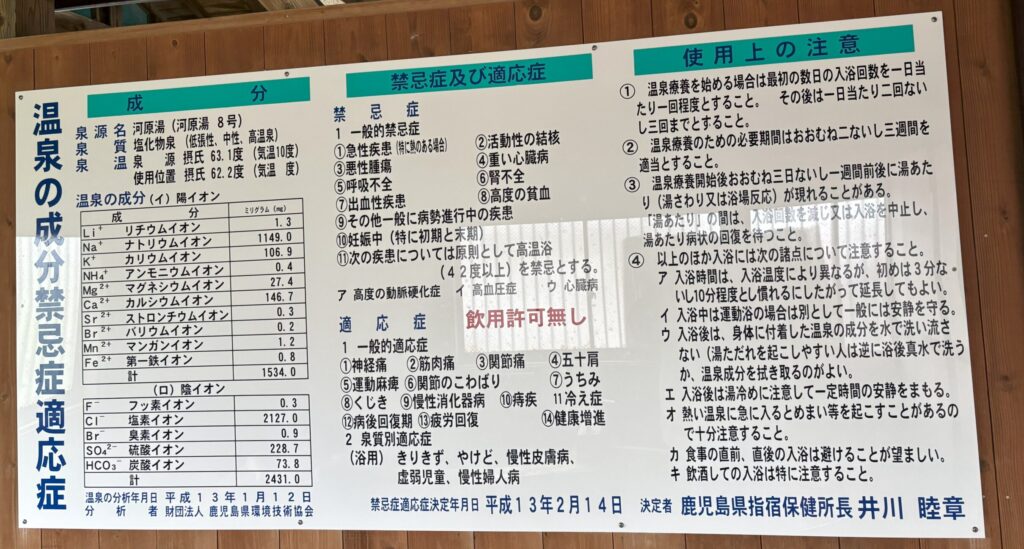 温泉の成分禁忌症適応症
成分
泉源名 河原湯(河原湯 8号)
泉質 塩化物泉 (低張性、中性、高温泉)
泉温 泉源 摂氏 63.1度 (気温10度)
使用位置 摂氏 62.2度 (気温 度)
温泉の成分(イ)陽イオン
成分 ミリグラム(mg)
Li⁺ リチウムイオン 1.3
Na⁺ ナトリウムイオン 1149.0
K⁺ カリウムイオン 106.9
NH₄⁺ アンモニウムイオン 0.4
Mg²⁺ マグネシウムイオン 27.4
Ca²⁺ カルシウムイオン 146.7
Sr²⁺ ストロンチウムイオン 0.3
Br²⁺ バリウムイオン 0.2
Mn²⁺ マンガンイオン 1.2
Fe²⁺ 第一鉄イオン 0.8
計 1534.0
(ロ)陰イオン
F⁻ フッ素イオン 0.3
Cl⁻ 塩素イオン 2127.0
Br⁻ 臭素イオン 0.9
SO₄²⁻ 硫酸イオン 228.7
HCO₃⁻ 炭酸イオン 73.8
計 2431.0
温泉の分析年月日 平成13年1月12日
分析者 財団法人 鹿児島県環境技術協会
禁忌症及び適応症
禁忌症
1 一般的禁忌症
①急性疾患(特に熱のある場合) ②活動性の結核
③悪性腫瘍 ④重い心臓病
⑤呼吸不全 ⑥腎不全
⑦出血性疾患 ⑧高度の貧血
⑨その他一般に病勢進行中の疾患
⑩妊娠中(特に初期と末期)
⑪次の疾患については原則として高温浴
(42度以上)を禁忌とする。
ア 高度の動脈硬化症 イ 高血圧症 ウ 心臓病
飲用許可無し
適応症
1 一般的適応症
①神経痛 ②筋肉痛 ③関節痛 ④五十肩
⑤運動麻痺 ⑥関節のこわばり ⑦うちみ
⑧くじき ⑨慢性消化器病 ⑩痔疾 11冷え症
⑫病後回復期 ⑬疲労回復 ⑭健康増進
2 泉質別適応症
(浴用) きりきず、やけど、慢性皮膚病、
虚弱児童、慢性婦人病
禁忌症適応症決定年月日 平成13年2月14日
使用上の注意
① 温泉療養を始める場合は最初の数日の入浴回数を一日当
たり一回程度とすること。 その後は一日当たり二回ない
し三回までとすること。
② 温泉療養のための必要期間はおおむね二ないし三週間を
適当とすること。
③ 温泉療養開始後おおむね三日ないし一週間前後に湯あた
り(湯さわり又は浴場反応)が現れることがある。
「湯あたり」の間は、入浴回数を減じ又は入浴を中止し、
湯あたり病状の回復を待つこと。
④ 以上のほか入浴には次の諸点について注意すること。
ア 入浴時間は、入浴温度により異なるが、初めは3分な・
いし10分程度とし慣れるにしたがって延長してもよい。
イ 入浴中は運動浴の場合は別として一般には安静を守る。
ウ 入浴後は、身体に付着した温泉の成分を水で洗い流さ
ない(湯ただれを起こしやすい人は逆に浴後真水で洗う
か、温泉成分を拭き取るのがよい。
エ 入浴後は湯冷めに注意して一定時間の安静をまもる。
オ 熱い温泉に急に入るとめまい等を起こすことがあるの
で十分注意すること。
カ 食事の直前、直後の入浴は避けることが望ましい。
キ 飲酒しての入浴は特に注意すること。
決定者 鹿児島県指宿保健所長 井川 睦章